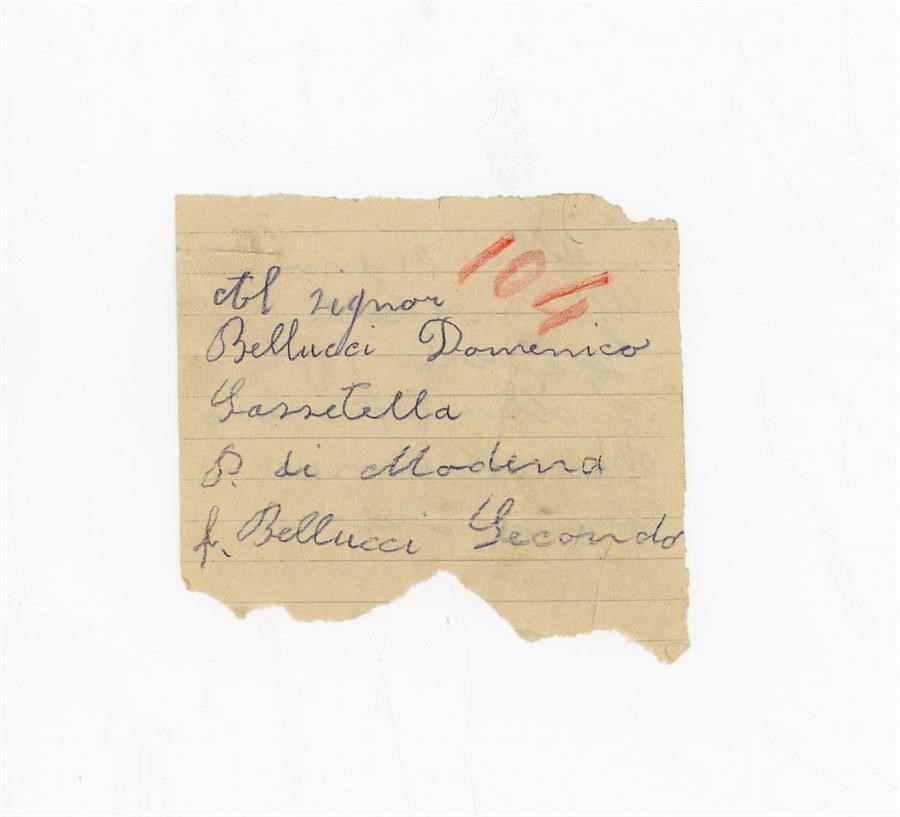 104
Al signor
Bellucci Domenico
Sassetella
P. di Modena
f. Bellucci Secondo